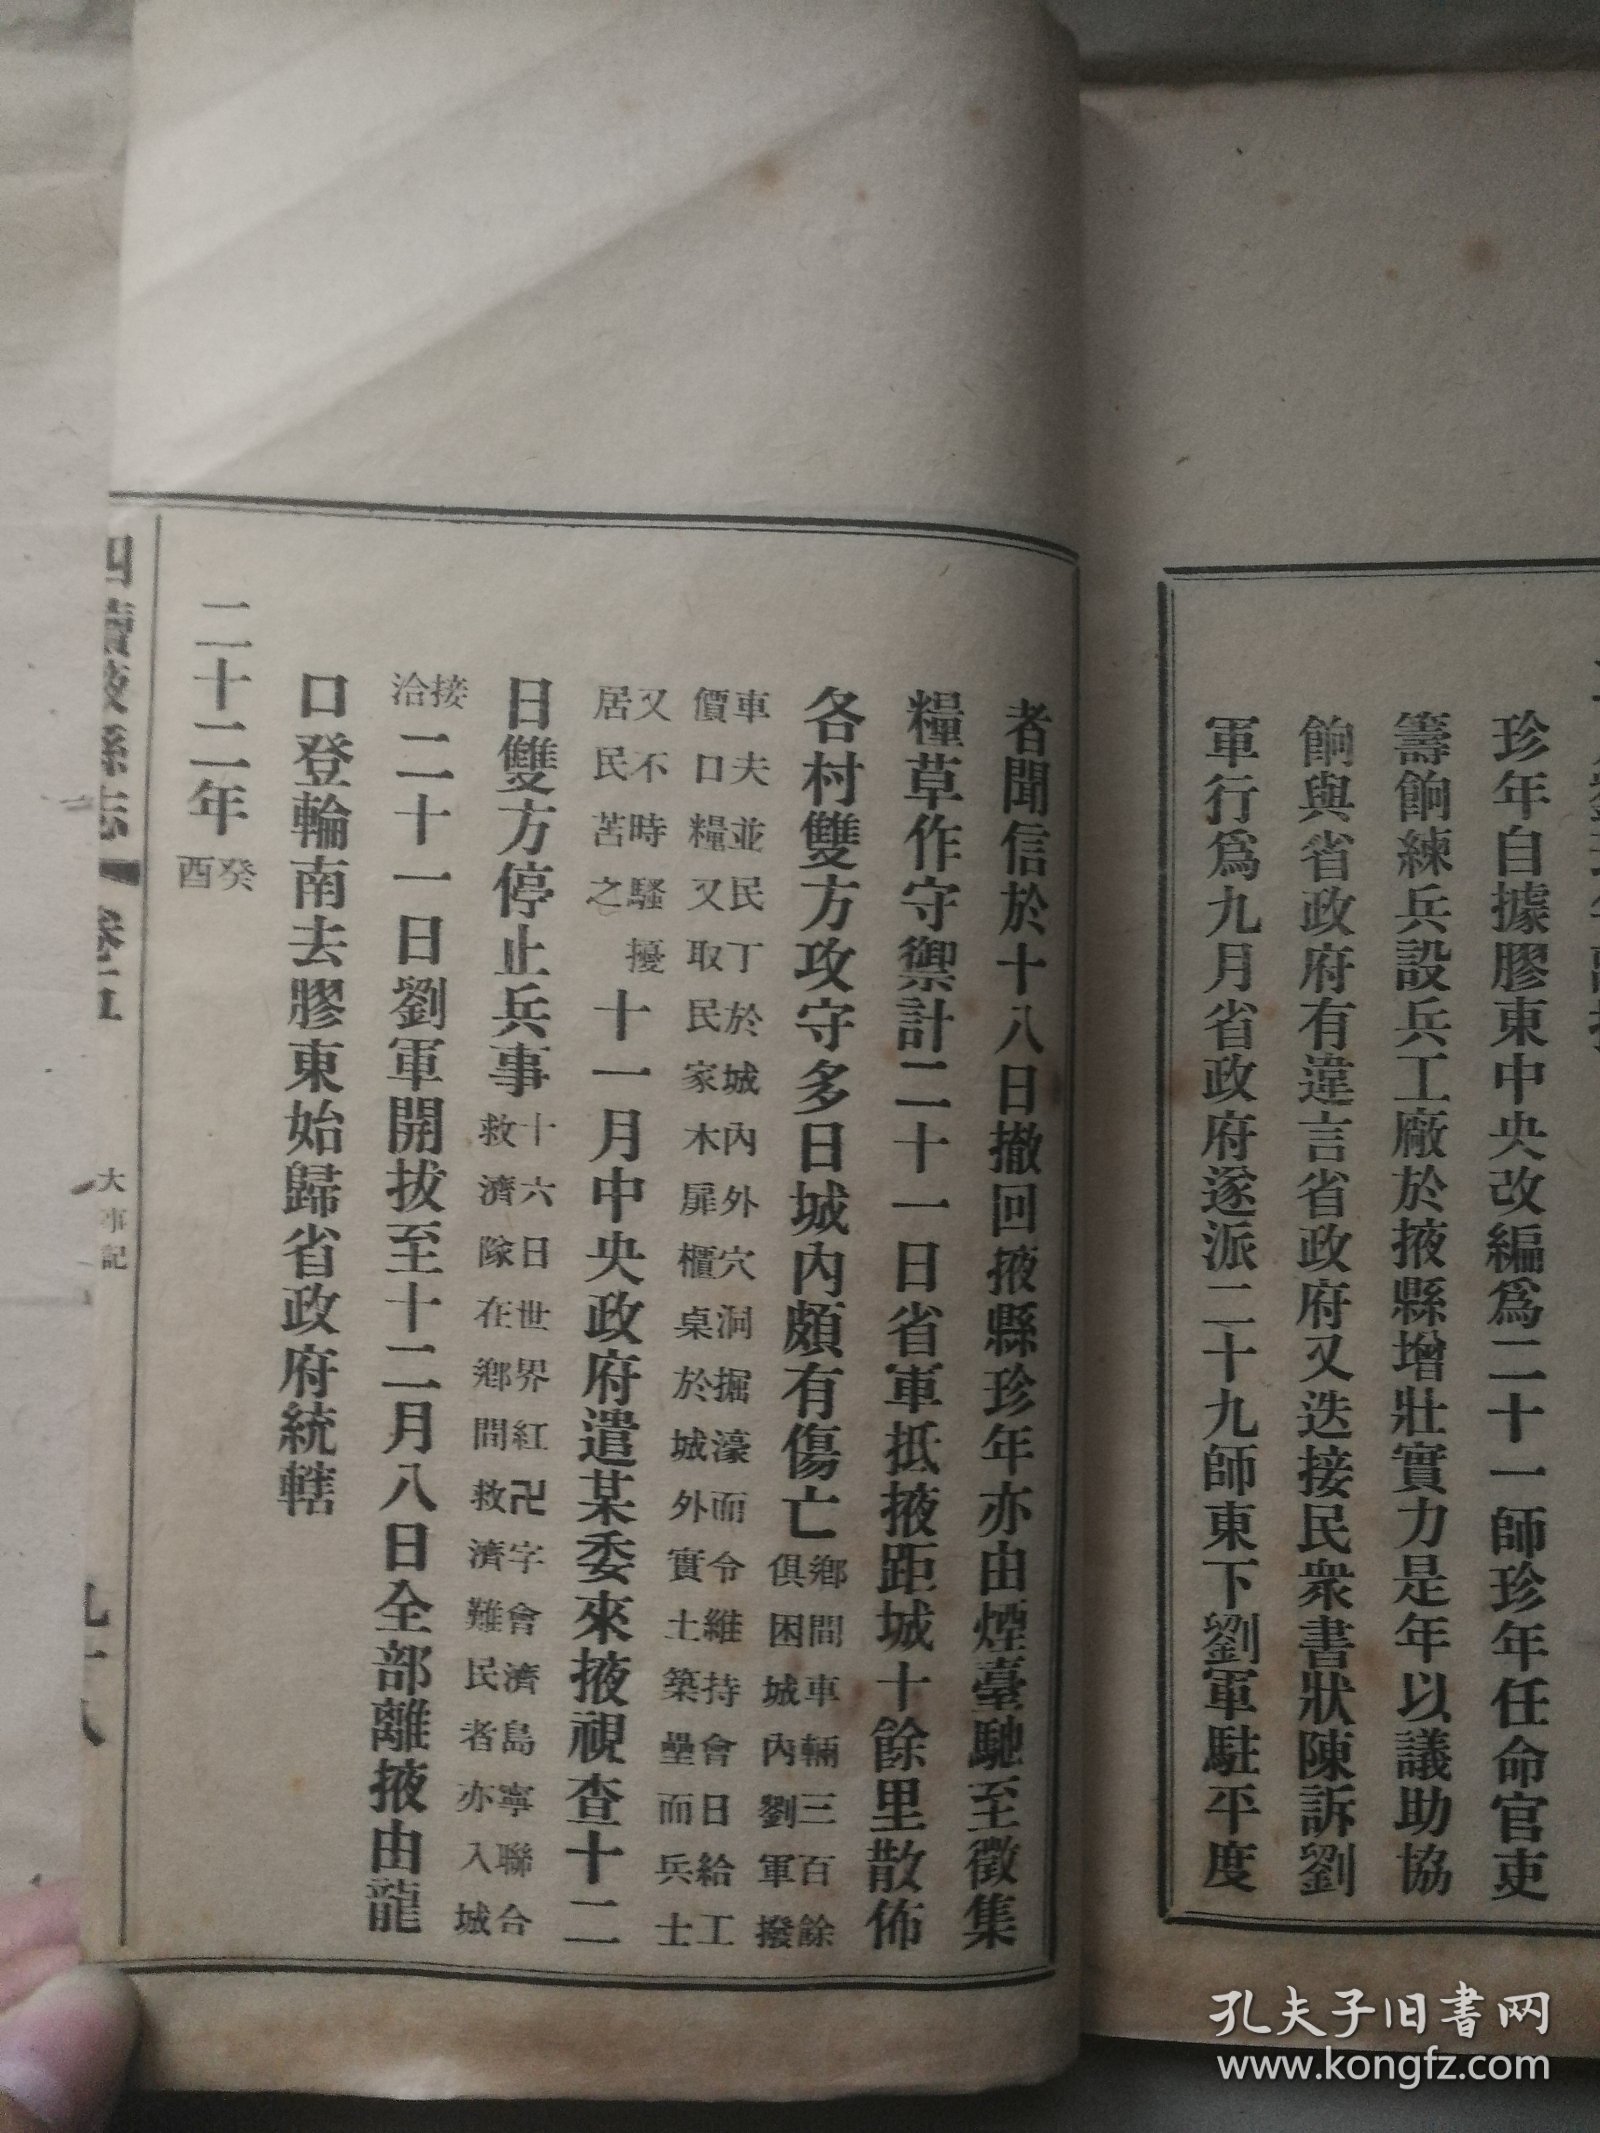 珍年自據膠東中央改編爲二十一師珍年任命官吏
籌餉練兵設兵工廠於掖縣增壯實力是年以議助協
餉與省政府有違言省政府又迭接民衆書狀陳訴劉
軍行爲九月省政府遂派二十九師東下劉軍駐平度
者聞信於十八日撤回掖縣珍年亦由煙臺馳至徵集
糧草作守禦計二十一日省軍抵掖距城十餘里散佈
各村雙方攻守多日城內頗有傷亡
鄉間車輛三百餘
俱困城內劉軍撥
車夫並民丁於城內外穴洞掘濠而令維持會日給工
價口糧又取民家木扉櫃桌於城外實土築壘而兵士
又不時騷擾
居民苦之
十一月中央政府遣某委來掖視查十二
日雙方停止兵事
十六日世界紅卍字會濟島寧聯合
救濟隊在鄉間救濟難民者亦入城
接
洽
二十一日劉軍開拔至十二月八日全部離掖由龍
口登輪南去膠東始歸省政府統轄
二十二年
癸
酉
四續掖縣志 卷五 大事記 九十八
孔夫子旧書网
www.kongfz.com